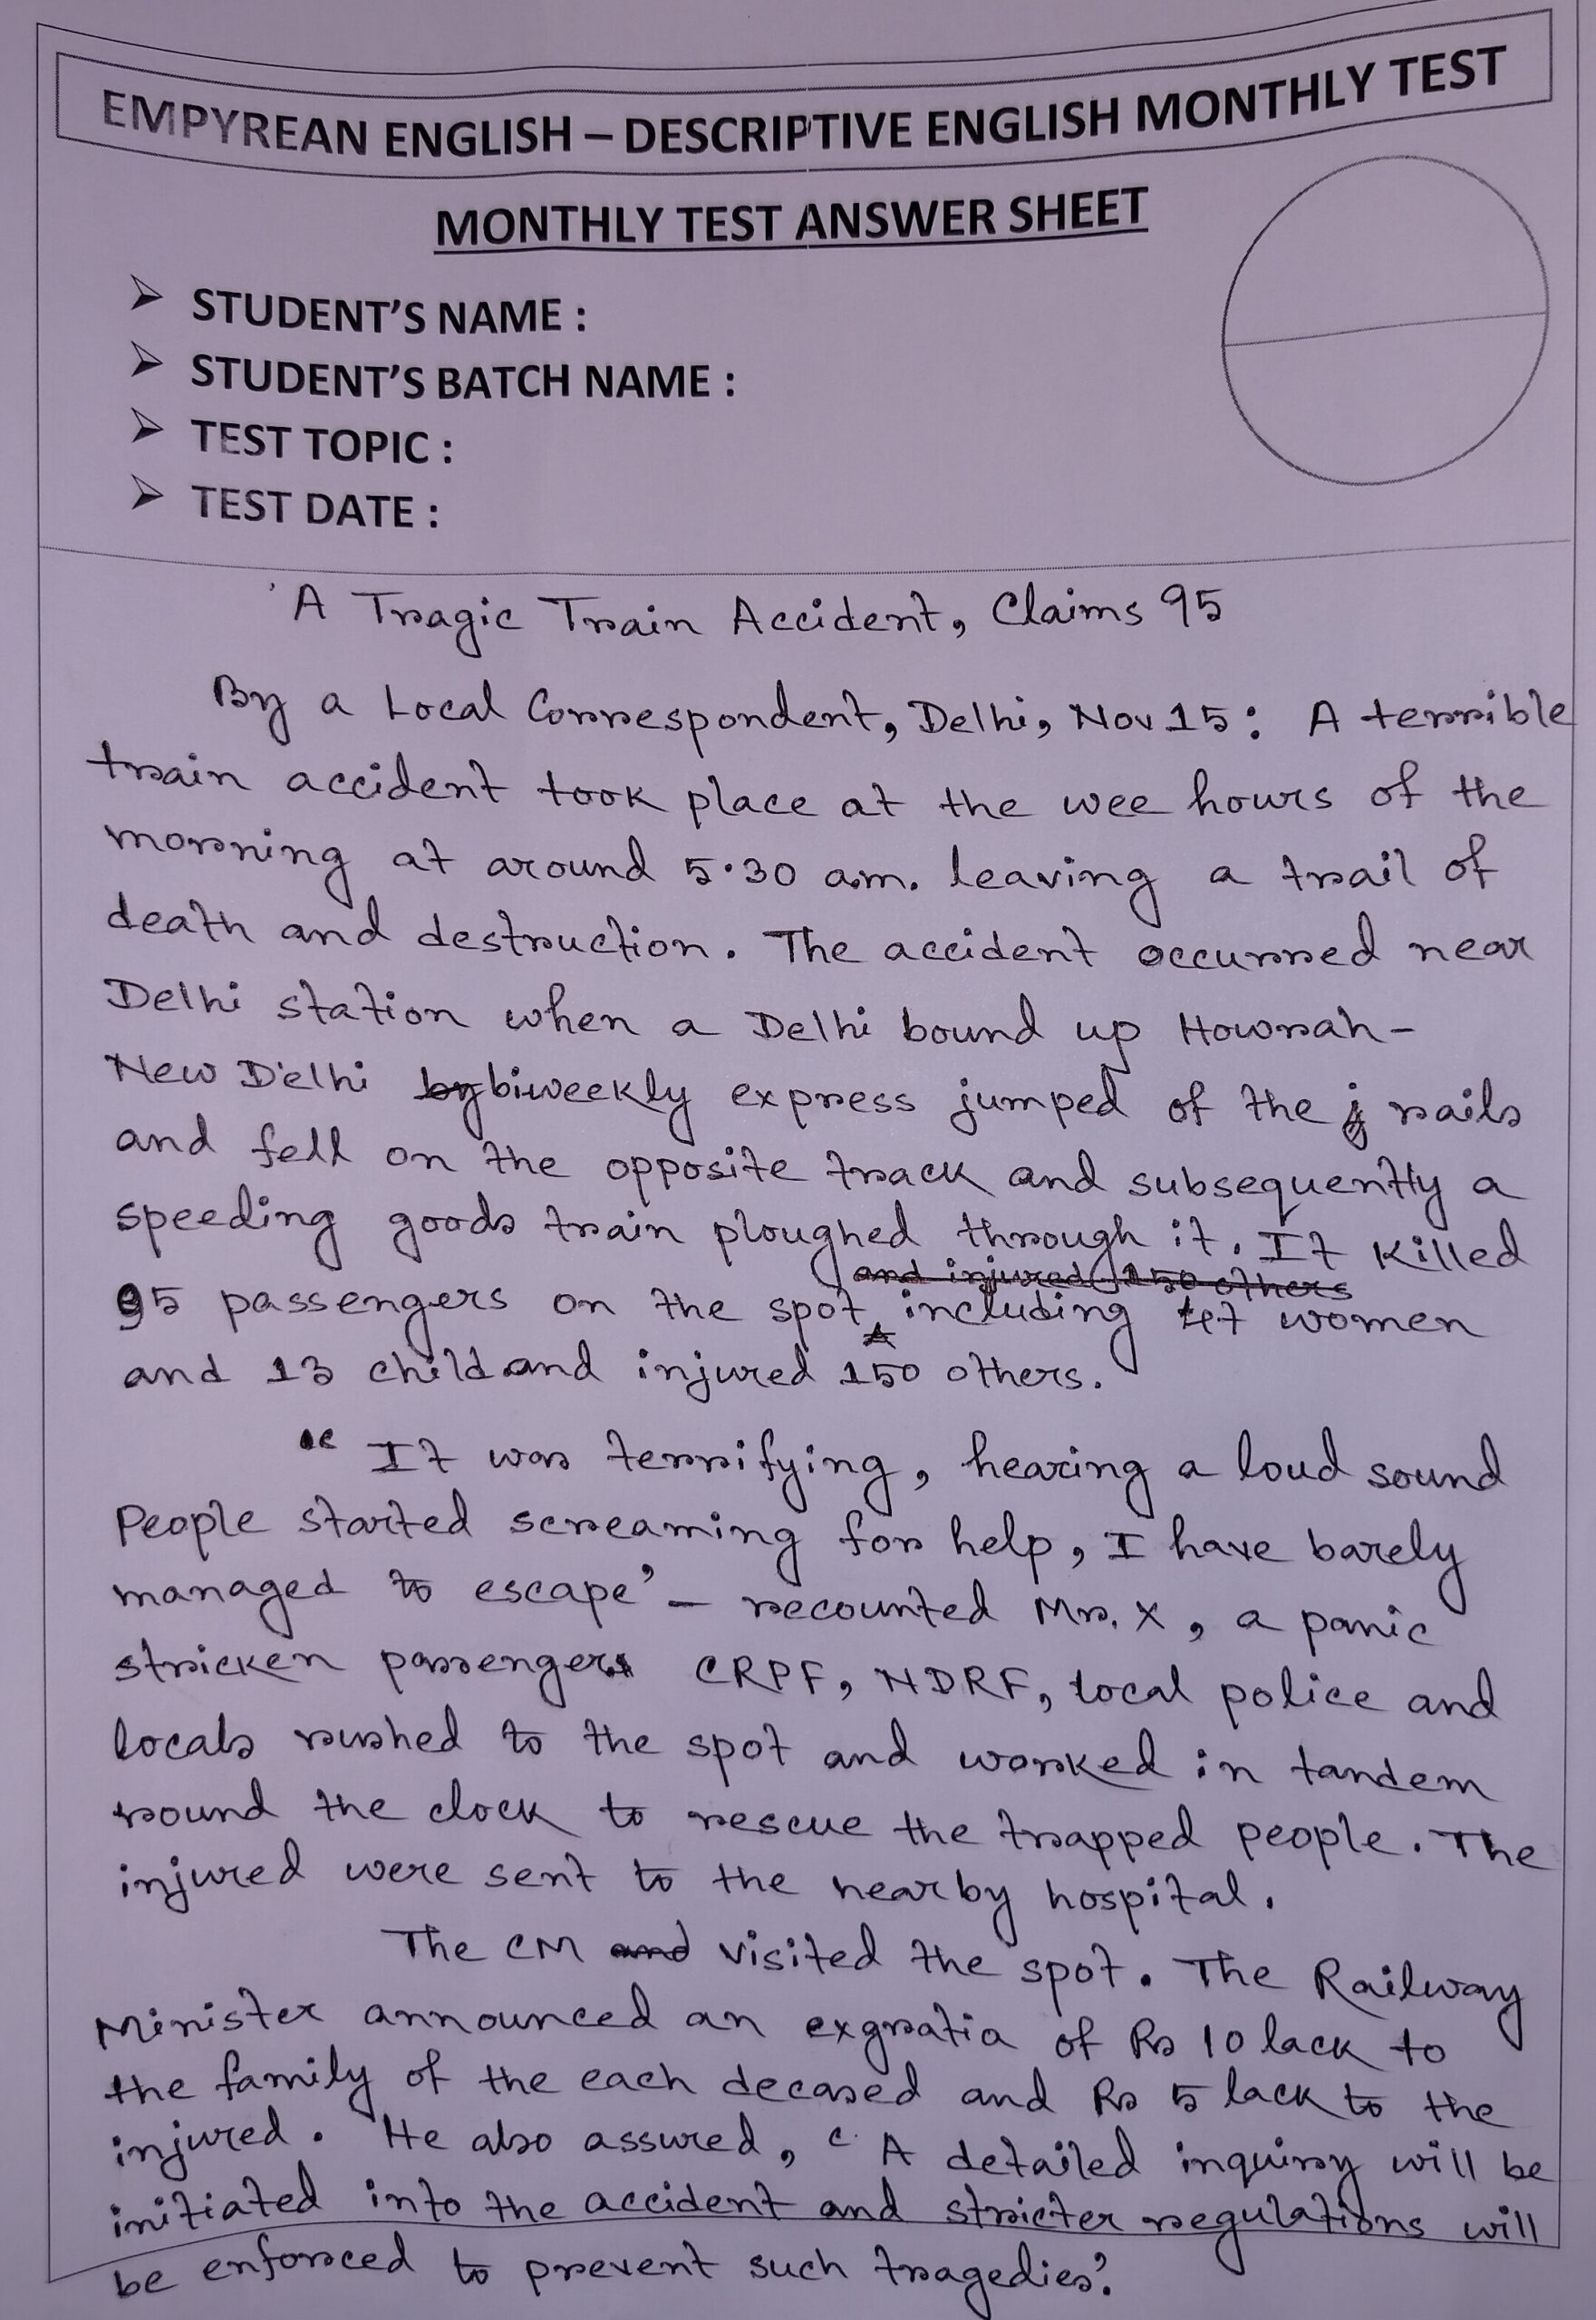 EMPYREAN ENGLISH – DESCRIPTIVE ENGLISH MONTHLY TEST
MONTHLY TEST ANSWER SHEET
➢ STUDENT'S NAME :
➢ STUDENT'S BATCH NAME :
➢ TEST TOPIC :
➢ TEST DATE :
'A Tragic Train Accident, Claims 95
By a Local Correspondent, Delhi, Nov 15: A terrible
train accident took place at the wee hours of the
morning at around 5.30 a.m. leaving a trail of
death and destruction. The accident occurred near
Delhi station when a Delhi bound up Howrah-
New Delhi by biweekly express jumped of the j rails
and fell on the opposite track and subsequently a
speeding goods train ploughed through it. It killed
and injured 150 others
95 passengers on the spot including 47 women
and 13 child and injured 150 others.
"It was terrifying, hearing a loud sound
People started screaming for help, I have barely
managed to escape' – recounted Mr. X, a panic
stricken passenger. CRPF, NDRF, local police and
locals rushed to the spot and worked in tandem
round the clock to rescue the trapped people. The
injured were sent to the nearby hospital.
The CM and visited the spot. The Railway
Minister announced an exgratia of Rs 10 lack to
the family of the each decased and Rs 5 lack to the
injured. He also assured, ' A detailed inquiry will be
initiated into the accident and stricter regulations will
be enforced to prevent such tragedies'.